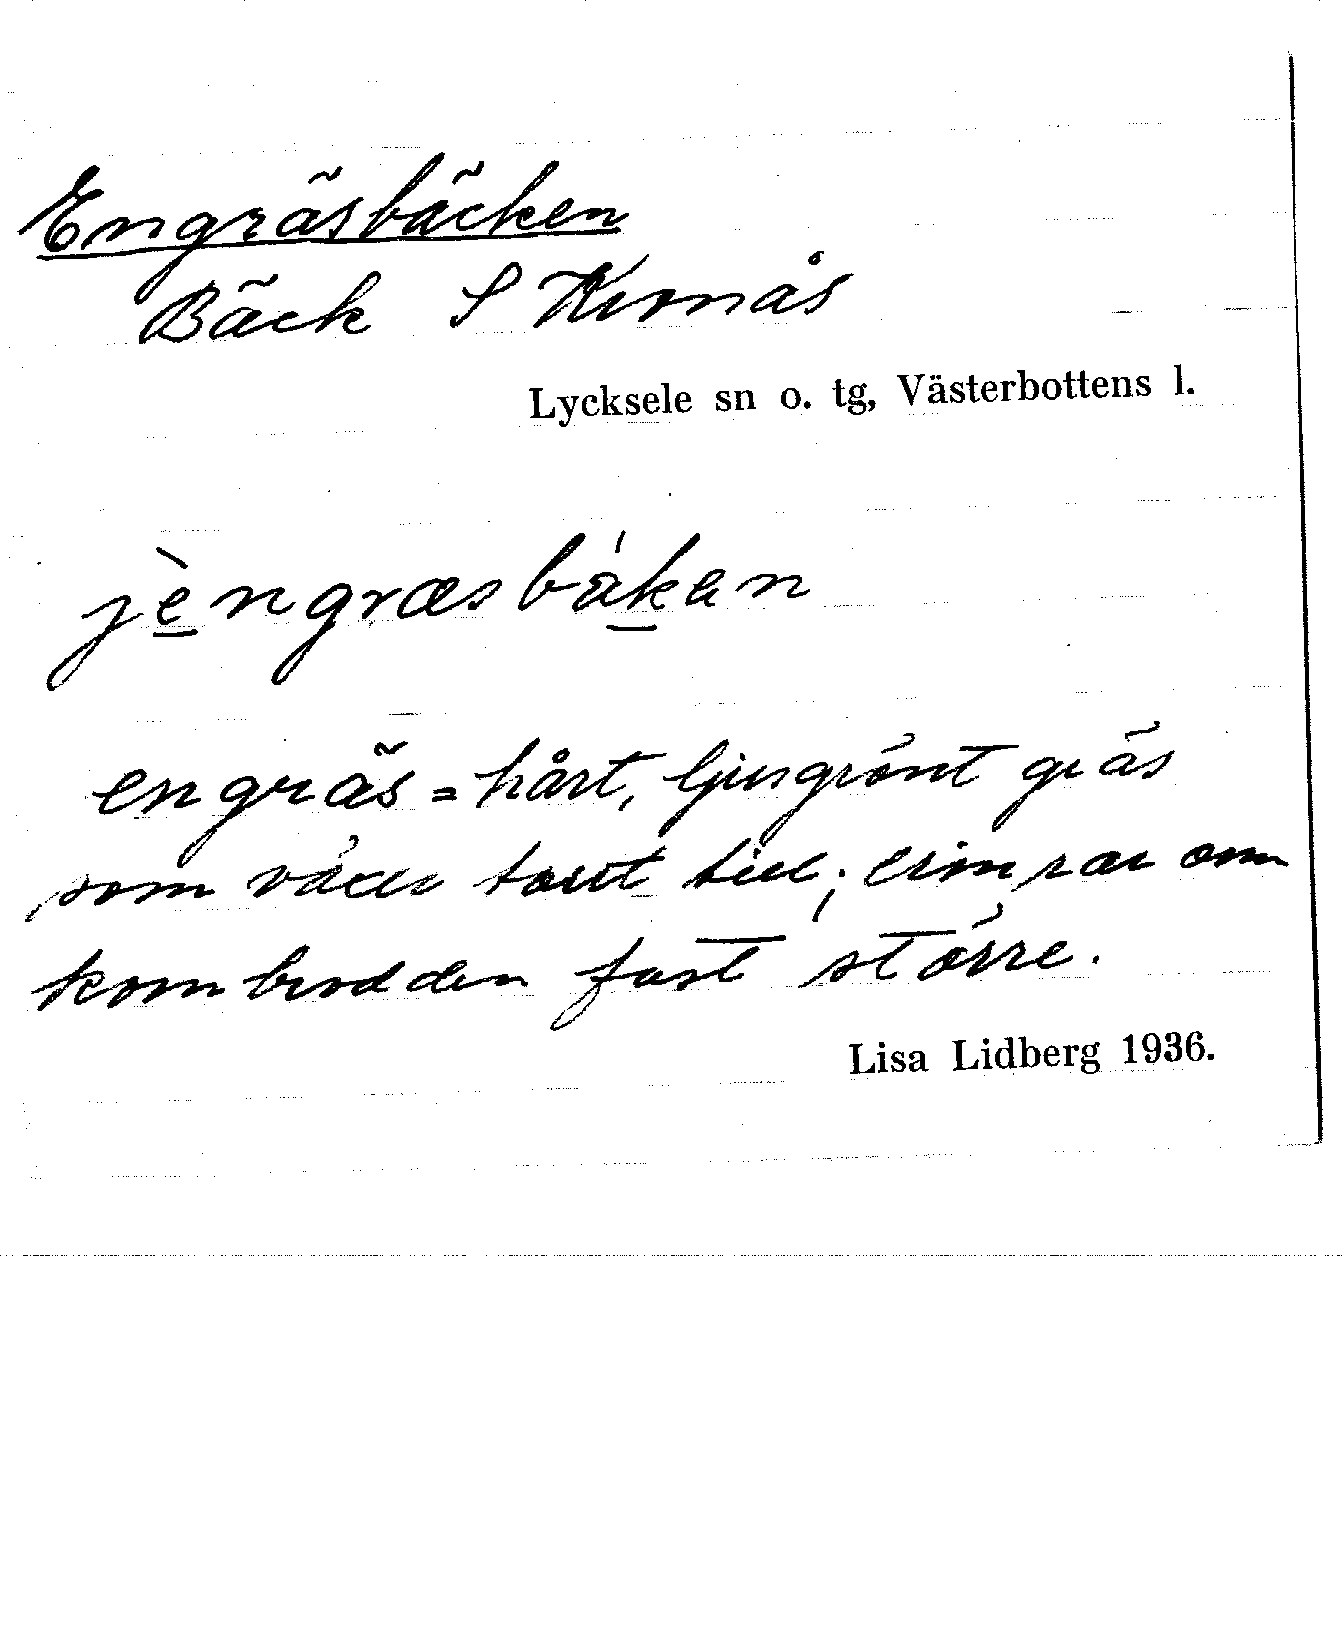 Engräsbäcken
Bäck S Kirnäs
Lycksele sn o. tg, Västerbottens l.
jèngræsbákan
engräs = hårt, ljusgrönt gräs
som växer tant till; som
kornbrodden fast större.
Lisa Lidberg 1936.